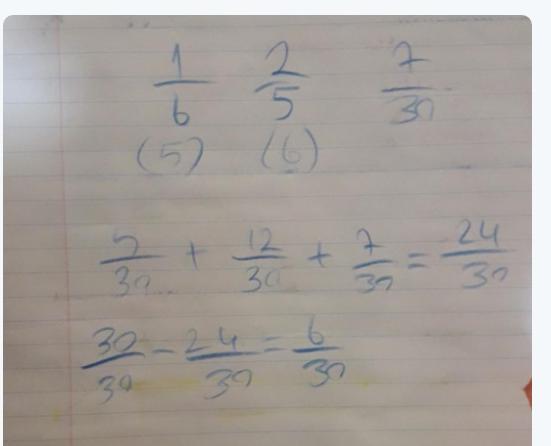 1/6 2/5 7/30
(5) (6)
5/30 + 12/30 + 7/30 = 24/30
30/30 - 24/30 = 6/30